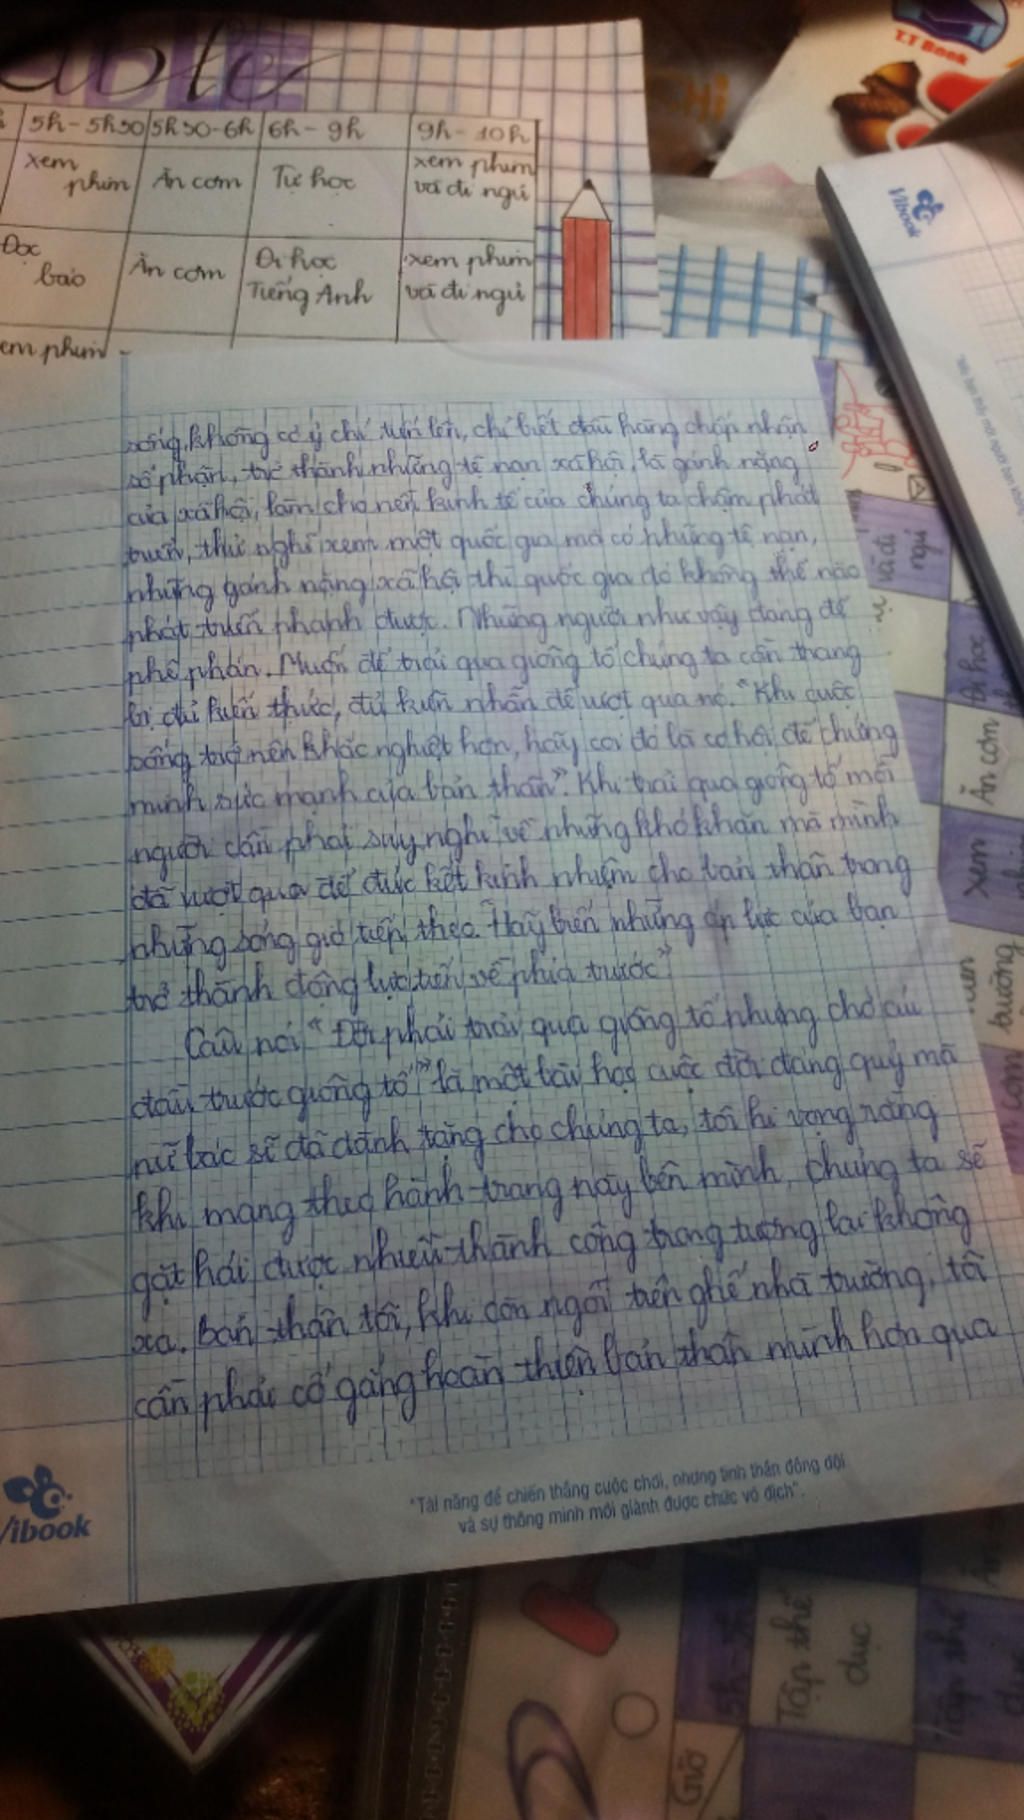 able
5h-5h30 5h30-6h 6h-9h 9h-10h
xem phim Ăn cơm Tự học xem phim và đi ngủ
Đọc báo Ăn cơm Đi học Tiếng Anh xem phim và đi ngủ
em phim
T.T Book
Vibook
sống, không có ý chí tiến lên, chỉ biết đầu hàng chấp nhận
số phận, trở thành những tệ nạn xã hội, là gánh nặng
của xã hội, làm cho nền kinh tế của chúng ta chậm phát
triển, thử nghĩ xem một quốc gia mà có những tệ nạn,
những gánh nặng xã hội thì quốc gia đó không thể nào
phát triển nhanh được. Những người như vậy đáng để
phê phán. Muốn để trải qua giông tố chúng ta cần trang
bị đủ kiến thức, đủ kiên nhẫn để vượt qua nó. "Khi cuộc
sống trở nên khắc nghiệt hơn, hãy coi đó là cơ hội để chứng
minh sức mạnh của bản thân". Khi trải qua giông tố mỗi
người cần phải suy nghĩ về những khó khăn mà mình
đã vượt qua để đúc kết kinh nhiệm cho bản thân trong
những sóng gió tiếp theo. "Hãy biến những áp lực của bạn
trở thành động lực tiến về phía trước"
Câu nói "Đời phải trải qua giông tố nhưng chớ cúi
đầu trước giông tố" là một bài học cuộc đời đáng quý mà
nữ bác sĩ đã dành tặng cho chúng ta, tôi hi vọng rằng
khi mang theo hành trang này bên mình, chúng ta sẽ
gặt hái được nhiều thành công trong tương lai không
xa. Bản thân tôi, khi còn ngồi trên ghế nhà trường, tôi
cần phải cố gắng hoàn thiện bản thân mình hơn qua
Vibook
"Tài năng để chiến thắng cuộc chơi, nhưng tinh thần đồng đội
và sự thông minh mới giành được chức vô địch".
và đi ngủ
Đi học
Ăn cơm
xem
Giờ
5h
Tập thể dục
Tập thể dục